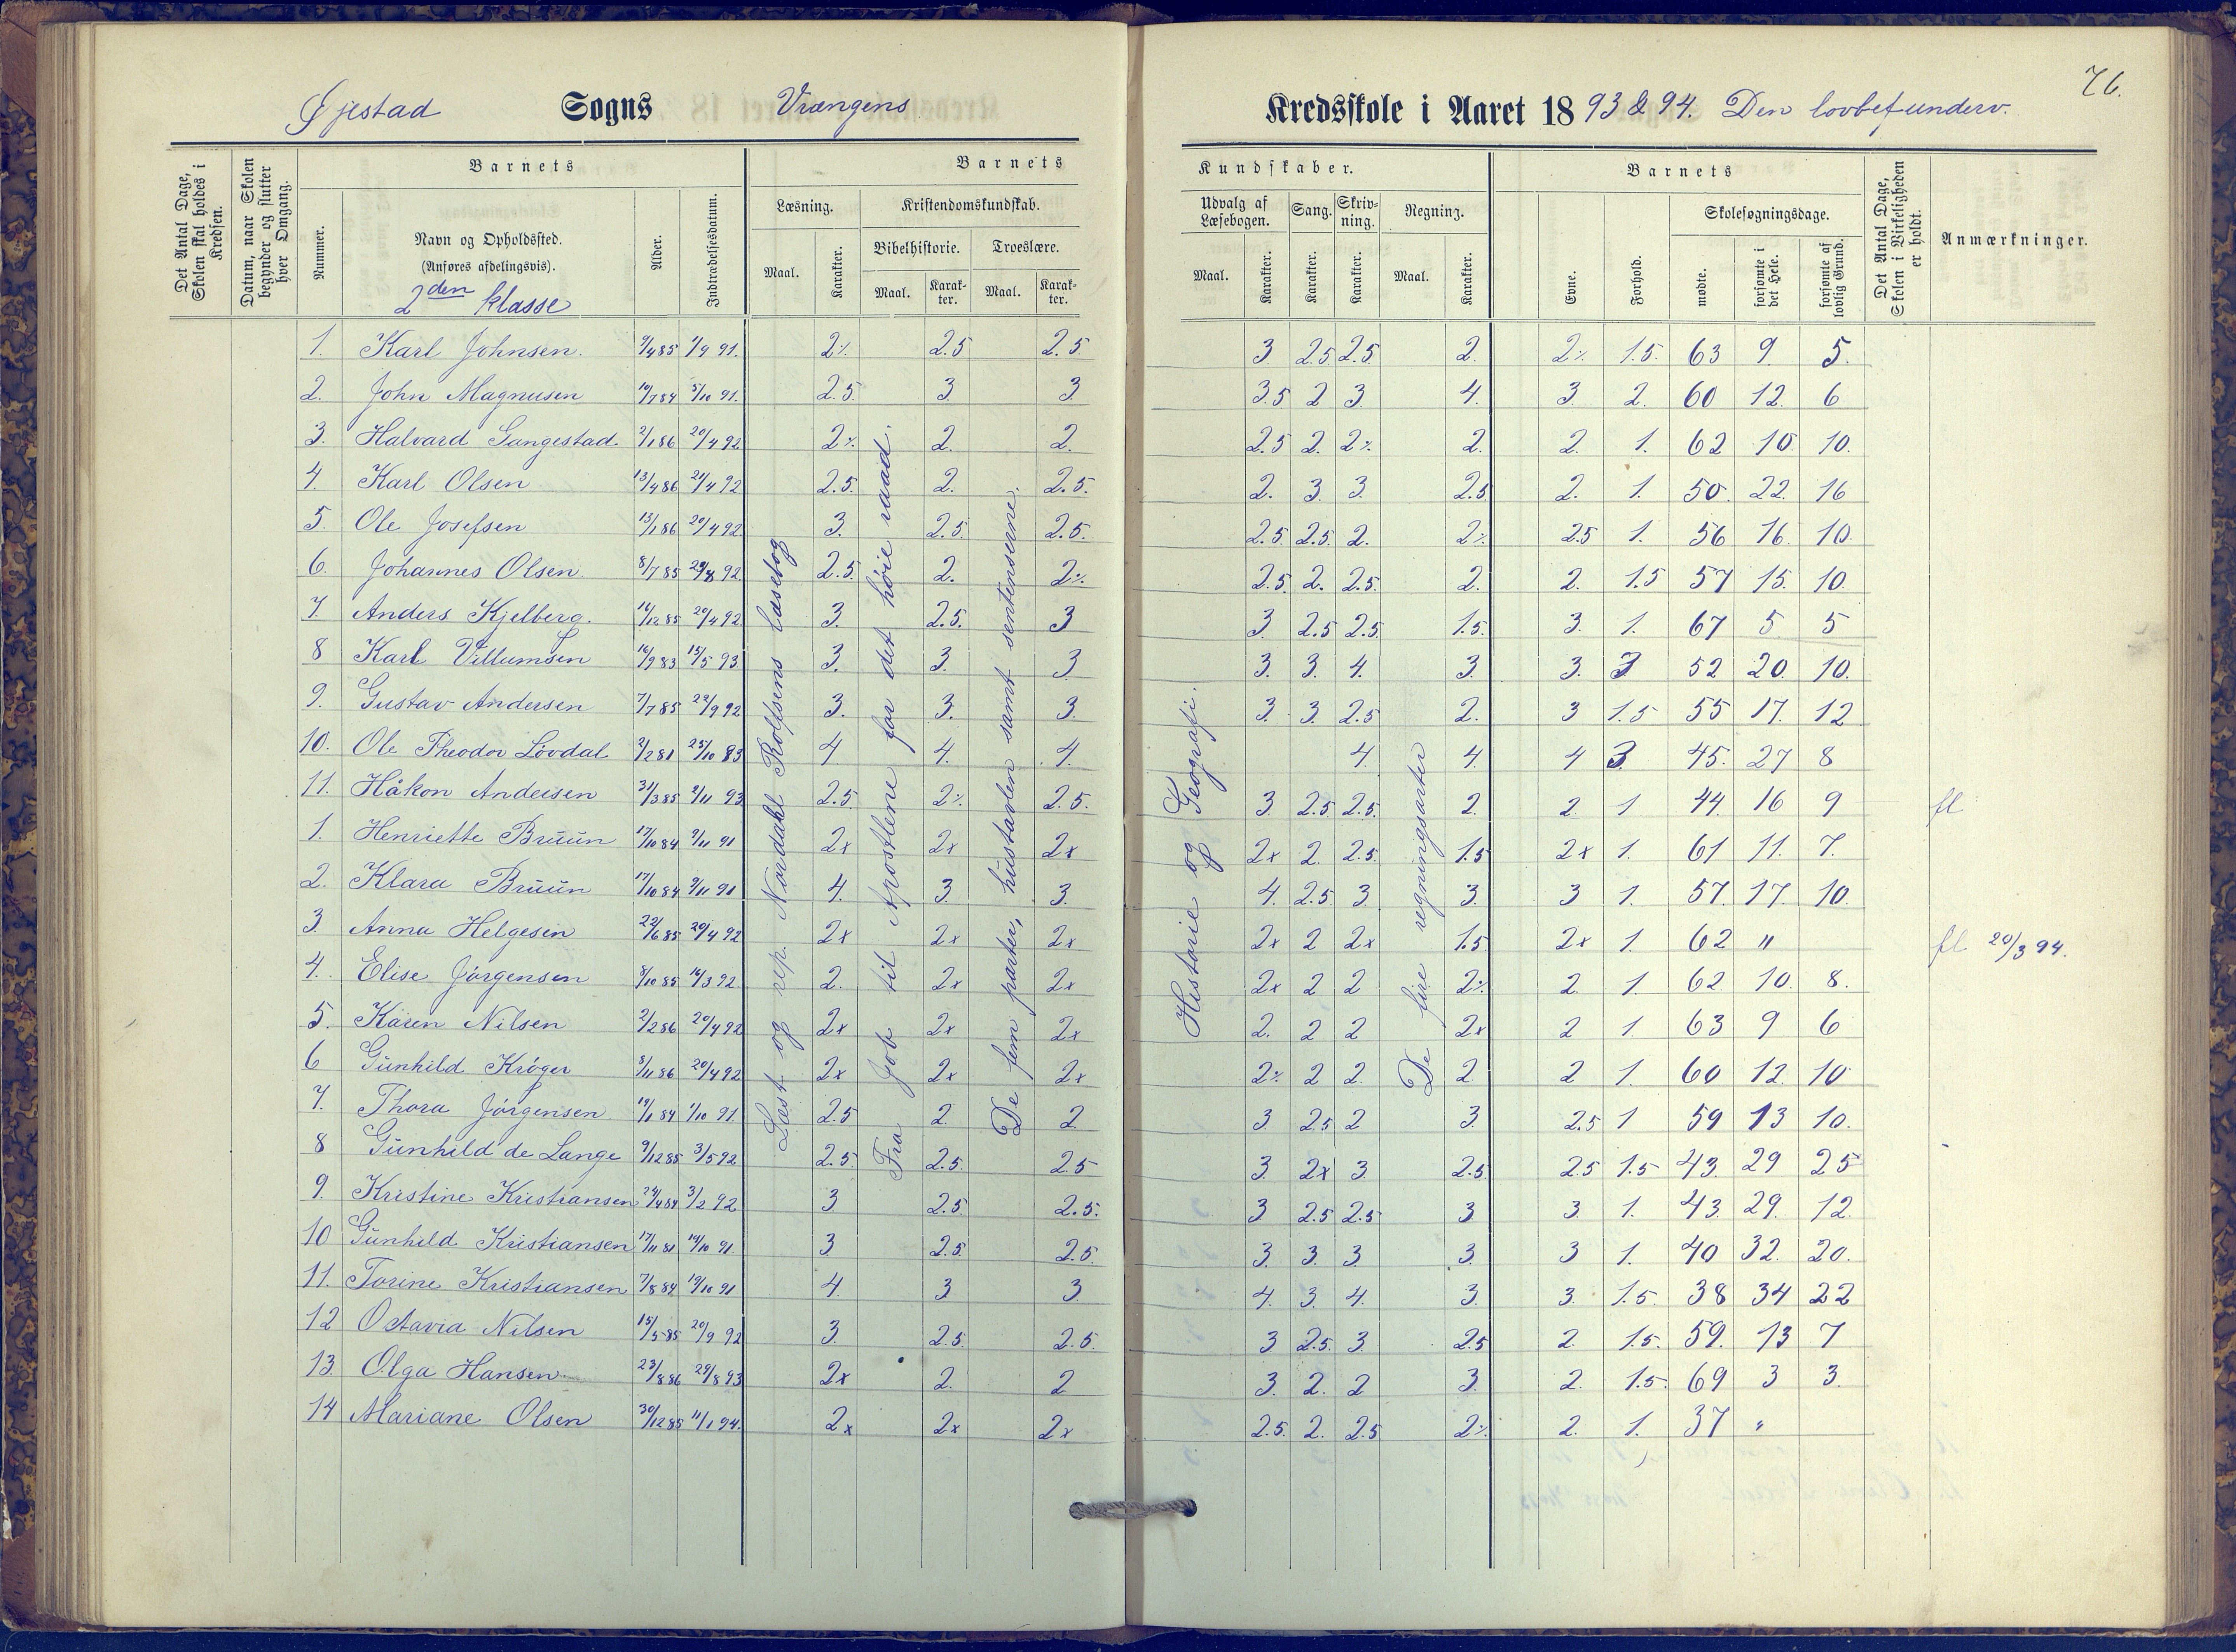 76.
Øjestad Sogns Vrængens Kredsskole i Aaret 1893 & 94. Den lovbef underv.
Det Antal Dage, Skolen skal holdes i Kredsen.
Datum, naar Skolen begynder og slutter hver Omgang.
Barnets
Nummer.
Navn og Opholdssted.
(Anføres afdelingsvis).
2den klasse
Alder.
Indtrædelsesdatum.
Barnets Kundskaber.
Læsning. Maal. Karakter.
Kristendomskundskab.
Bibelhistorie. Maal. Karakter.
Troeslære. Maal. Karakter.
Udvalg af Læsebogen. Maal. Karakter.
Sang. Karakter.
Skrivning. Karakter.
Regning. Maal. Karakter.
Barnets
Evne. Forhold.
Skolesøgningsdage.
mødte. forsømte i det Hele. forsømte af lovlig Grund.
Det Antal Dage, Skolen i Virkeligheden er holdt.
Anmærkninger.
Læst og rep. Nordahl Rolfsens læsebog
Fra Job til Apostlene for det høie raad.
De fem parter, hustavlen samt sentenserne.
Historie og Geografi.
De fire regningsarter
1. Karl Johnsen. 9/4 85 1/9 91. 2% 2.5 2.5. 3 2.5 2.5. 2. 2% 1.5. 63 9. 5.
2. John Magnusen 10/7 84 5/10 91. 2.5. 3. 3. 3.5 2 3. 4. 3. 2. 60 12. 6
3. Halvard Langestad 2/1 86 20/4 92. 2% 2. 2. 2.5 2. 2% 2. 2. 1. 62 10. 10.
4. Karl Olsen 13/4 86 21/4 92 2.5. 2. 2.5. 2. 3. 3. 2.5 2. 1. 50. 22. 16
5. Ole Josefsen 13/1 86 20/4 92. 3. 2.5. 2.5. 2.5. 2.5. 2. 2% 2.5 1. 56 16. 10.
6. Johannes Olsen. 8/7 85 29/8 92 2.5. 2. 2% 2.5. 2. 2.5. 2. 2. 1.5 57 15. 10.
7. Anders Kjelberg. 16/12 85 20/4 92 3. 2.5. 3 3. 2.5 2.5. 1.5. 3. 1. 67 5. 5
8 Karl Villumsen 16/9 83 15/5 93. 3. 3. 3 3. 3. 4. 3. 3. 3 52 20. 10.
9. Gustav Andersen 7/7 85 22/9 92 3. 3. 3. 3. 3. 2.5 2. 3 1.5 55 17. 12
10. Ole Theodor Løvdal 2/2 81 25/10 83 4 4. 4. 4. 4. 4 3. 45. 27 8
11. Håkon Andersen 31/3 85 2/11 93 2.5. 2% 2.5. 3 2.5 2.5. 2. 2. 1 44. 16 9 fl
1. Henriette Bruun 17/10 84 9/11 91 2x 2x 2x 2x 2. 2.5. 1.5 2x 1. 61 11. 7.
2. Klara Bruun 17/10 84 9/11 91 4. 3. 3. 4. 2.5. 3. 3. 3 1. 57. 17. 10.
3. Anna Helgesen 22/6 85 20/4 92 2x 2x 2x 2x 2 2x 1.5 2x 1. 62 " fl 20/3 94.
4. Elise Jørgensen 8/10 85 16/3 92. 2. 2x 2x 2x 2 2 2% 2. 1. 62 10. 8.
5. Karen Nilsen 2/2 86 20/4 92 2x 2x 2x 2. 2 2 2x 2 1. 63 9 6
6 Gunhild Krøger 8/11 86 20/4 92 2x 2x 2x 2% 2 2. 2 2 1. 60 12. 10
7. Thora Jørgensen 19/1 84 1/10 91. 2.5 2. 2 3. 2.5 2 3. 2.5 1 59 13 10.
8 Gunhild de Lange 9/12 85 3/5 92 2.5. 2.5. 2.5 3. 2x 3. 2.5 2.5 1.5 43. 29 25
9. Kristine Kristiansen 24/4 84 3/2 92 3 2.5 2.5. 3. 2.5 2.5 3 3. 1. 43. 29. 12.
10 Gunhild Kristiansen 17/11 81 14/10 91 3. 2.5. 2.5. 3. 3. 3. 3. 3 1. 40 32. 20.
11. Torine Kristiansen 7/8 84 19/10 91 4. 3 3 4. 3. 4. 3. 3. 1.5. 38 34 22
12 Octavia Nilsen 15/5 85 20/9 92 3. 2.5. 2.5. 3 2.5. 3. 2.5 2. 1.5. 59. 13 7
13. Olga Hansen. 23/8 86 29/8 93 2x 2. 2 3. 2. 2 3. 2. 1.5. 69 3 3.
14 Mariane Olsen 30/12 85 11/1 94. 2x 2x 2x 2.5. 2. 2.5 2% 2. 1. 37 "